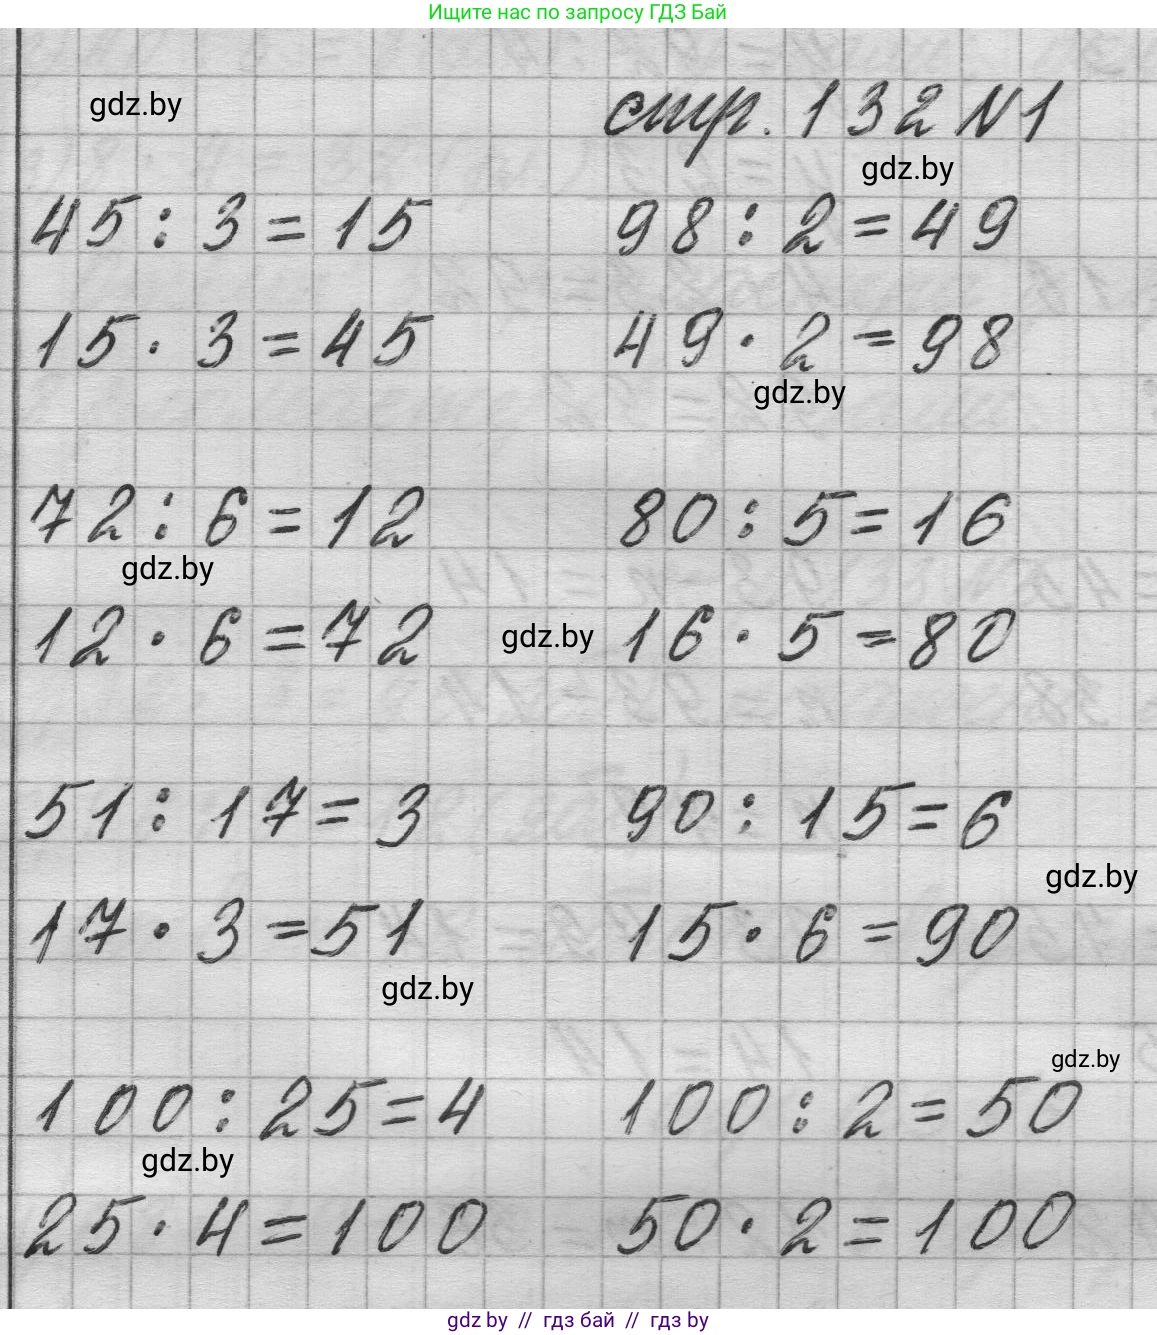 Ищите нас по запросу ГДЗ Бай
gdz.by
стр. 132 N1
gdz.by
45 : 3 = 15 98 : 2 = 49
15 · 3 = 45 49 · 2 = 98
gdz.by
72 : 6 = 12 80 : 5 = 16
gdz.by
12 · 6 = 72 gdz.by 16 · 5 = 80
51 : 17 = 3 90 : 15 = 6
gdz.by
17 · 3 = 51 15 · 6 = 90
gdz.by
gdz.by
100 : 25 = 4 100 : 2 = 50
gdz.by
25 · 4 = 100 50 · 2 = 100
gdz by // гдз бай // гдз by